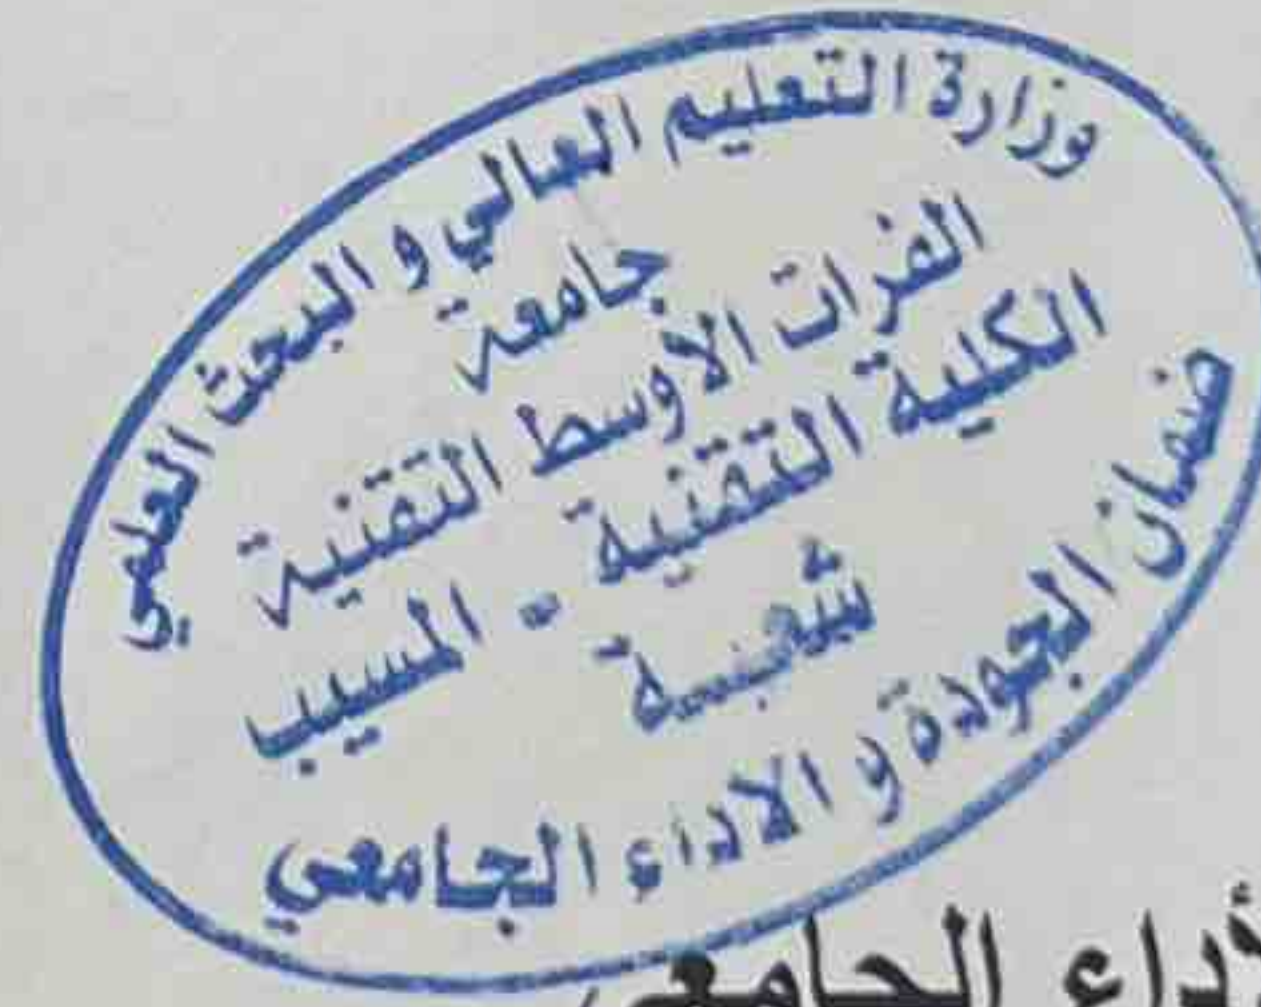 وزارة التعليم العالي و البحث العلمي
جامعة
الفرات الأوسط التقنية
الكلية التقنية - المسيب
شعبة
ضمان الجودة و الاداء الجامعي
الأداء الجامعي